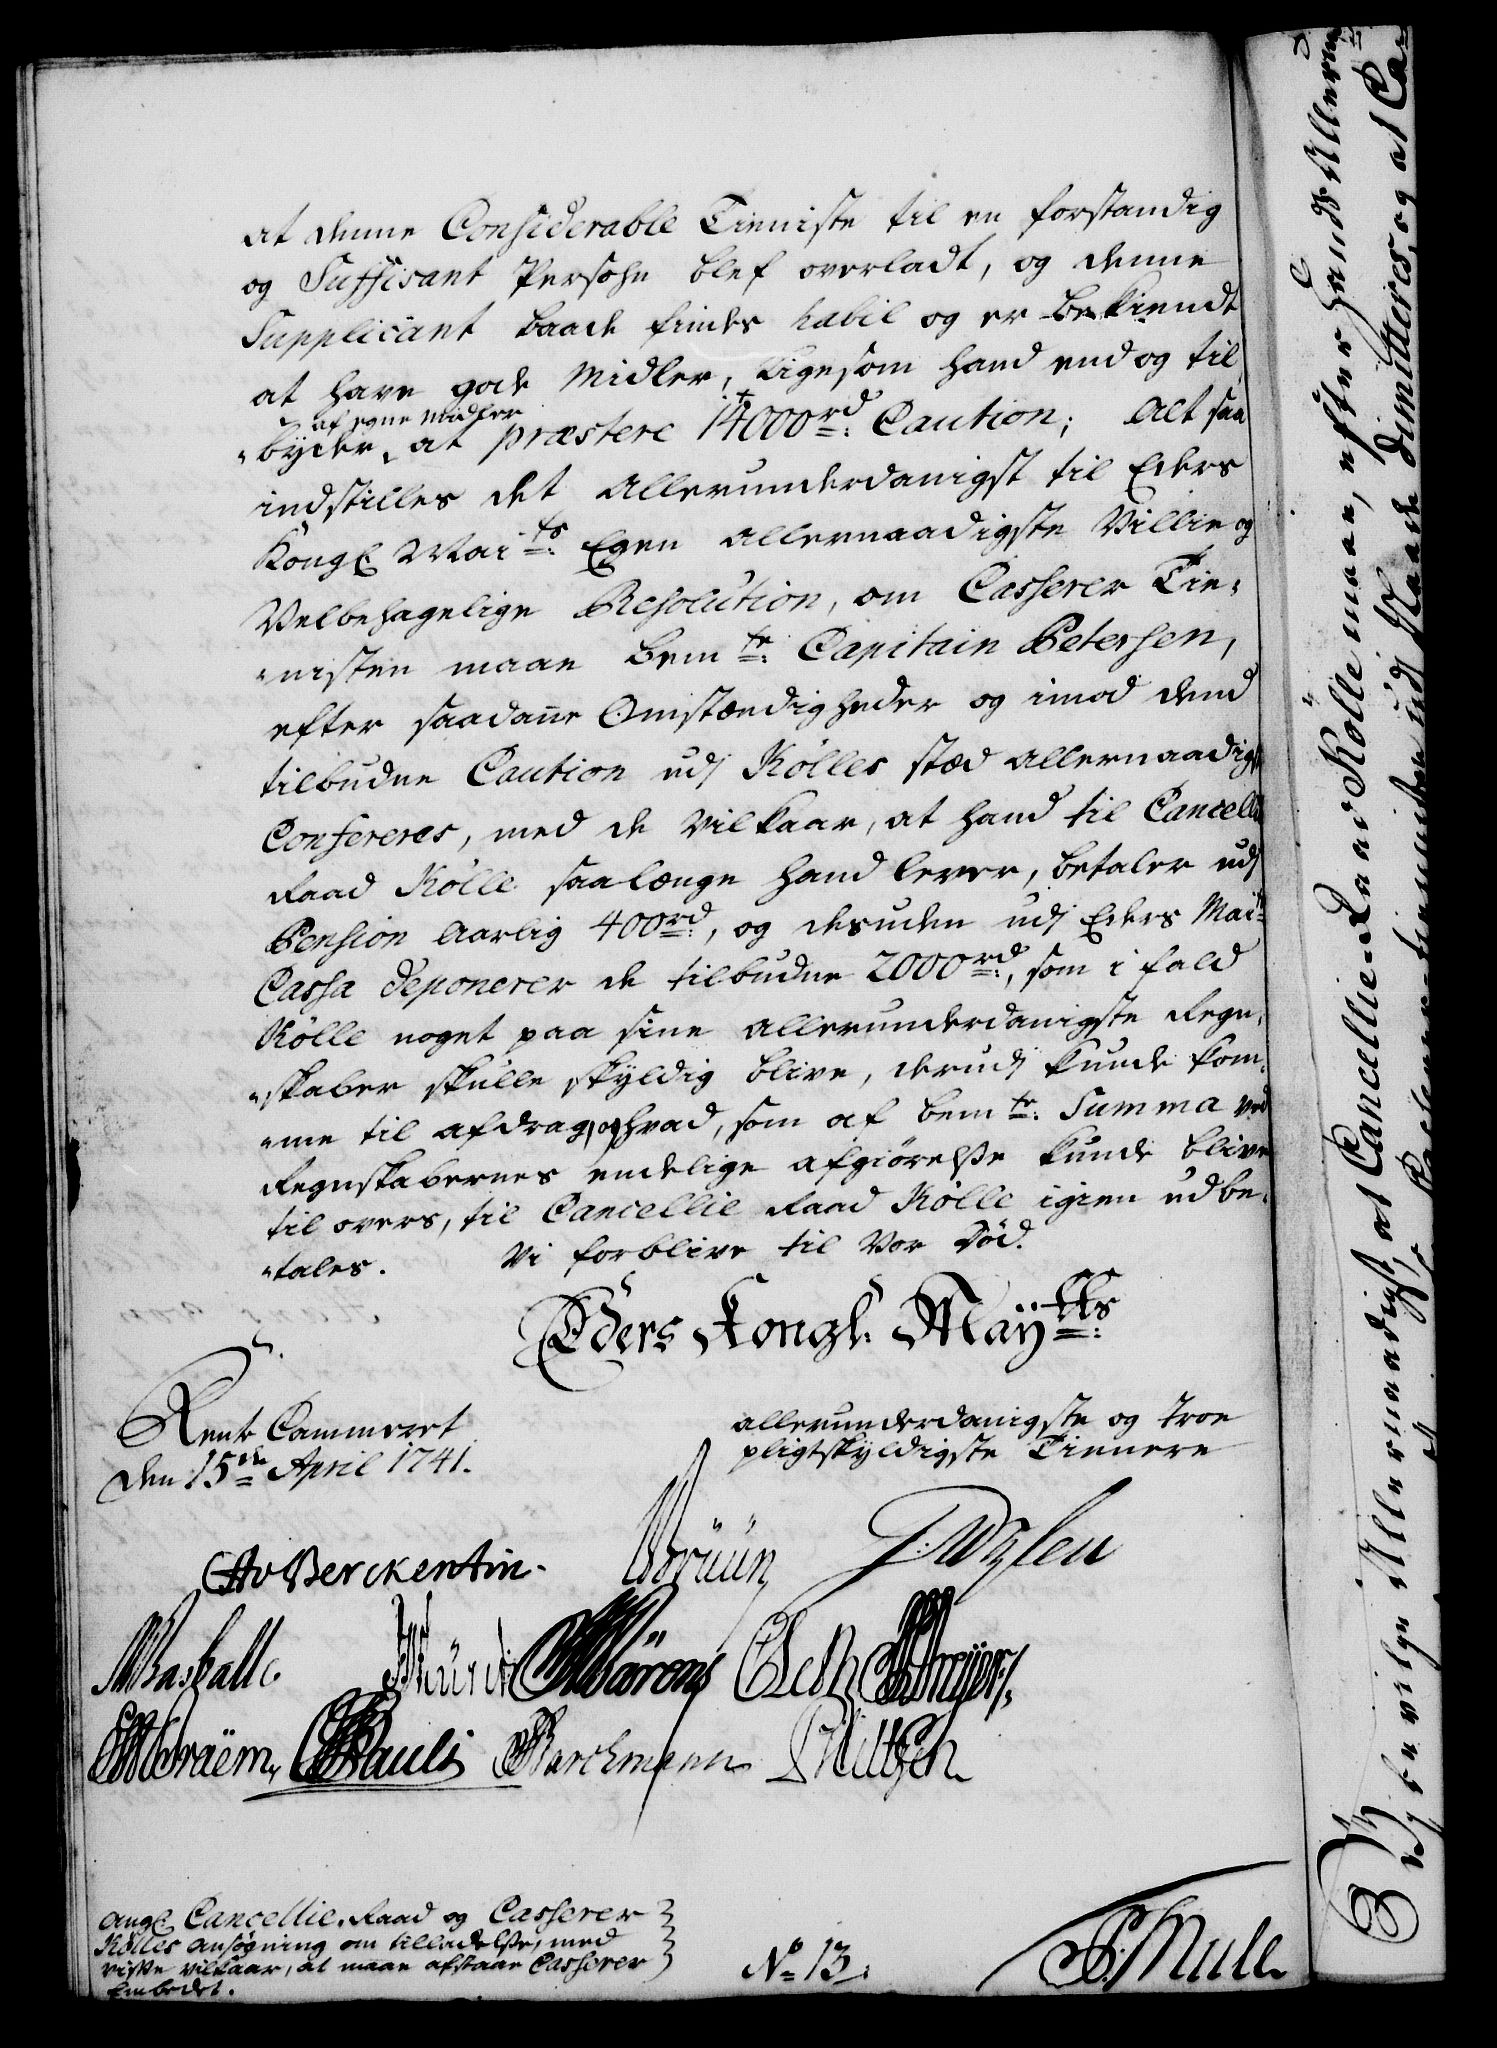 at denne Considerable Tieniste til en forstandig
og Suffisant Persohn blef overladt, og denne
Supplicant baade findes habil og er bekiendt
at have gode Midler, ligesom hand end og til
af egne midler
byder, at præstere 14000 rd: Caution; Alt saa
indstilles det allerunderdanigst til Eders
Kongl Mai ts: Egen allernaadigste Villie og
Velbehagelige Resolution, om Casserer Tie-
nisten maae bem te: Capitain Petersen,
efter saadanne Omstændigheder og imod dend
tilbudne Caution udj Kölles stæd allernaadigst
Confereres, med de Vilkaar, at hand til Cancellie
Raad Kölle saalænge hand lever, betaler udj
Pension Aarlig 400 rd:, og desuden udj Eders Mai ts
Cassa deponerer de tilbudne 2000 rd:, som i fald
Kölle noget paa sine allerunderdanigste Regn-
skaber skulle skyldig blive, derudj kunde kom-
me til afdrag, og hvad, som af bem te: Summa ved
Regnskabernes endelige afgiørelsse kunde blive
til overs, til Cancellie Raad Kölle igien udbe-
tales. Vi forblive til Vor Död.
Eders Kongl: Maytts:
Rente Cammeret
den 15de April 1741.
allerunderdanigste og troe
pligtskyldigste Tienere
CAvBerckentin.
Bruun
Baskall
Pauli
Barchmann
Angl Cancellie-Raad og Casserer
Kölles Ansøgning om tilladelsse, med
visse vilkaar, at maae afstaae Casserer
Embedet.
No 13.
Mule
Vj bevilge Allernaadigst, at Cancellie-Raad Kölle maae, efter hands Allerun